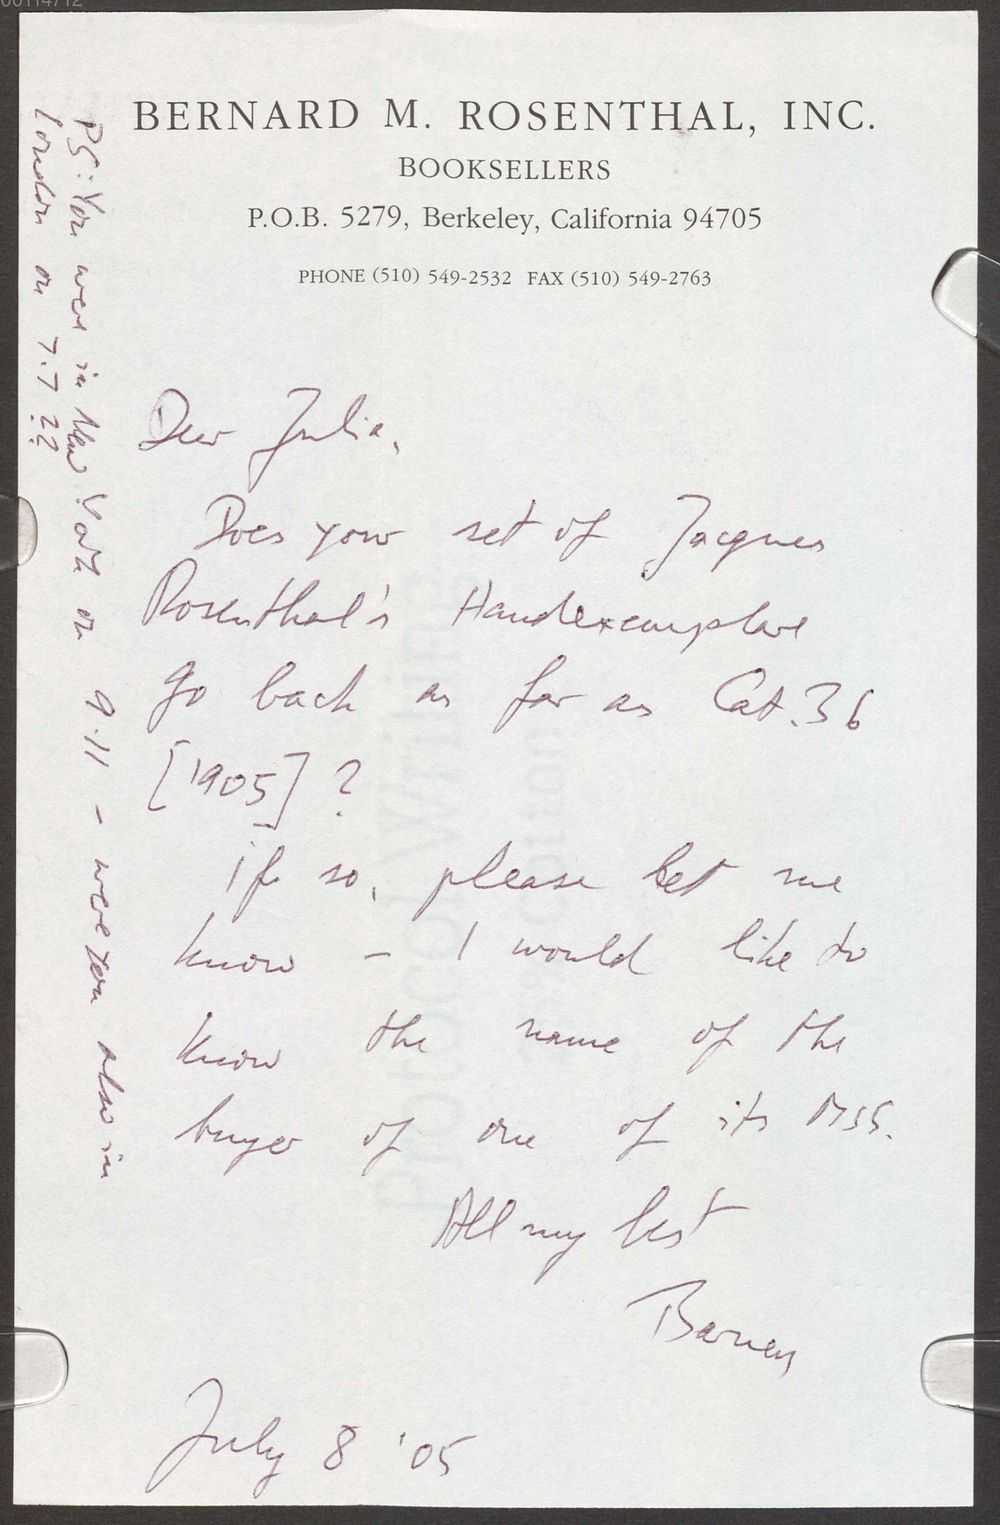 00114712
BERNARD M. ROSENTHAL, INC.
BOOKSELLERS
P.O.B. 5279, Berkeley, California 94705
PHONE (510) 549-2532 FAX (510) 549-2763
Dear Julia,
Does your set of Jacques
Rosenthal's Handexemplare
go back as far as Cat. 36
[1905] ?
if so, please let me
know - I would like to
know the name of the
buyer of one of its MSS.
All my best
Barney
July 8 '05
PS: You were in New York on 9.11 - were you also in
London on 7.7 ??